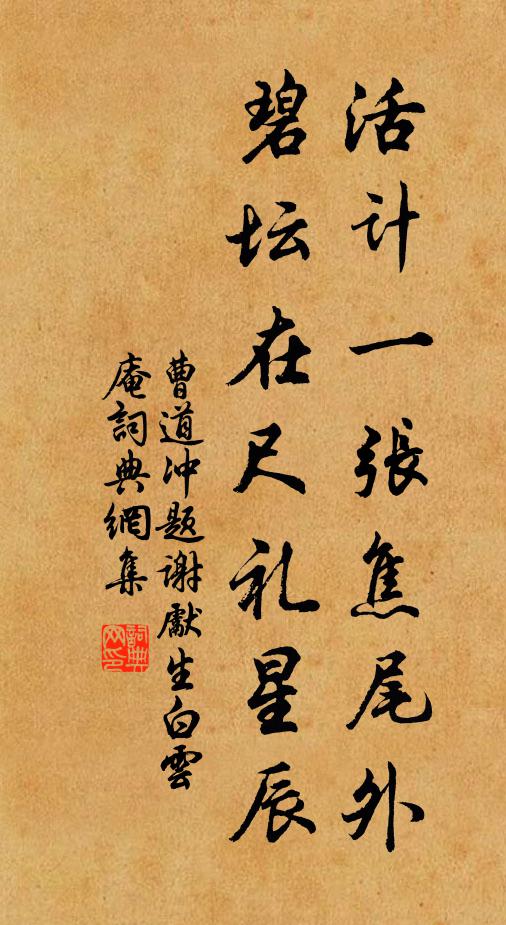 活计一張焦尾外
碧坛在尺礼星辰
曹道冲题谢處生白雲
庵詞典網集
詞典网印